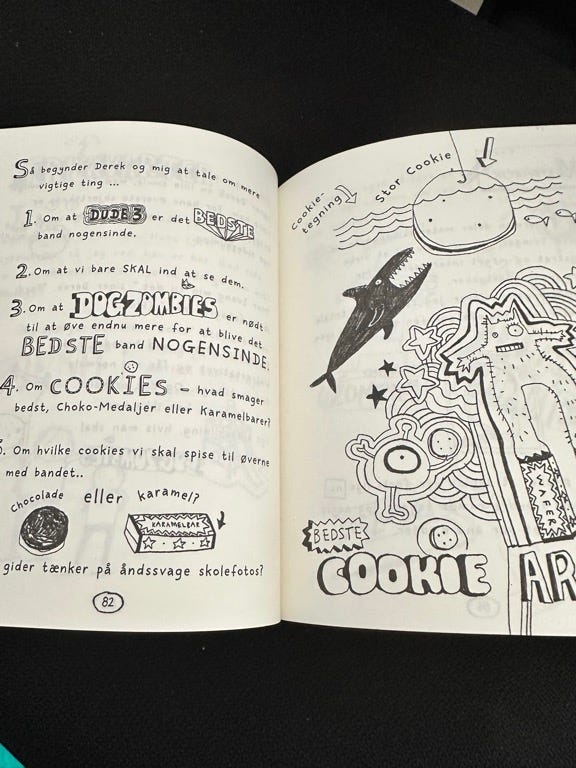 Så begynder Derek og mig at tale om mere
vigtige ting ...
1. Om at DUDE3 er det BEDSTE
band nogensinde.
2. Om at vi bare SKAL ind at se dem.
3. Om at DOGZOMBIES er nødt
til at øve endnu mere for at blive det
BEDSTE band NOGENSINDE.
4. Om COOKIES – hvad smager
bedst, Choko-Medaljer eller Karamelbarer?
. Om hvilke cookies vi skal spise til øverne
med bandet..
chocolade eller karamel?
KARAMELBAR
gider tænker på åndssvage skolefotos?
82
Cookie-
tegning
Stor Cookie
WAFER
BEDSTE
COOKIE AR